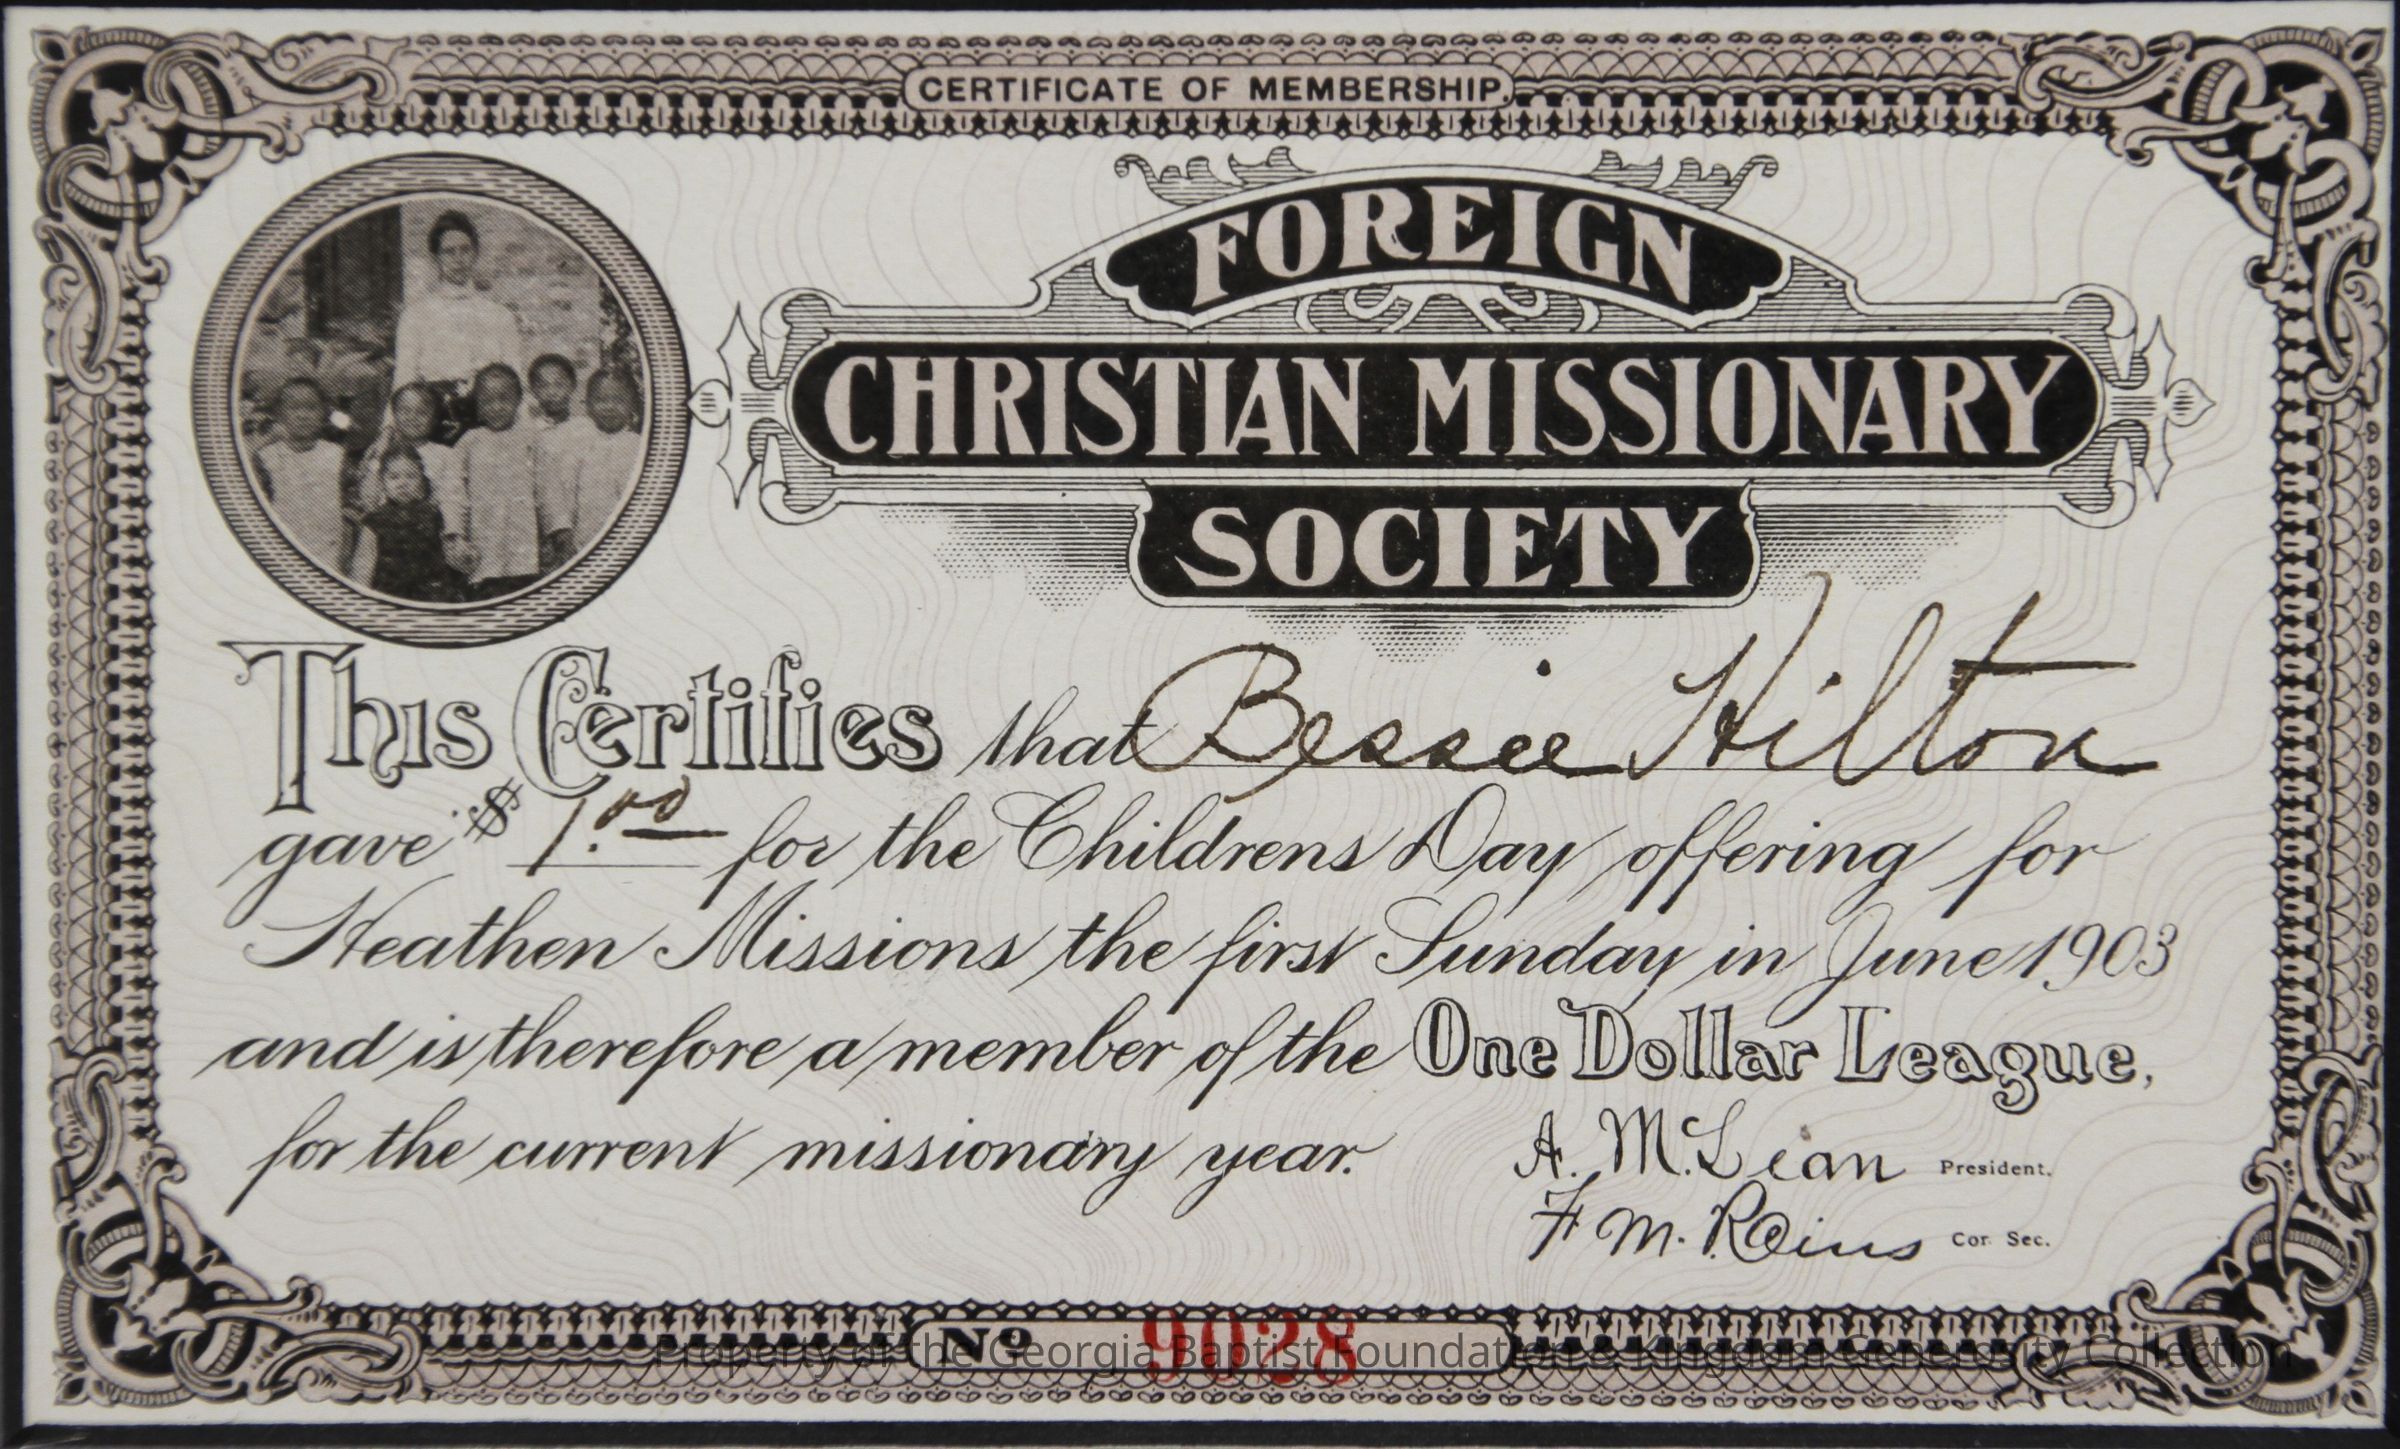 CERTIFICATE OF MEMBERSHIP.
FOREIGN
CHRISTIAN MISSIONARY
SOCIETY
This Certifies that Bessie Hilton
gave $ 1.00 for the Childrens Day offering for
Heathen Missions the first Sunday in June 1903
and is therefore a member of the One Dollar League,
for the current missionary year.
A. McLean President.
F. M. Rains Cor. Sec.
No 9028
Property of the Georgia Baptist Foundation & Kingdom Generosity Collection